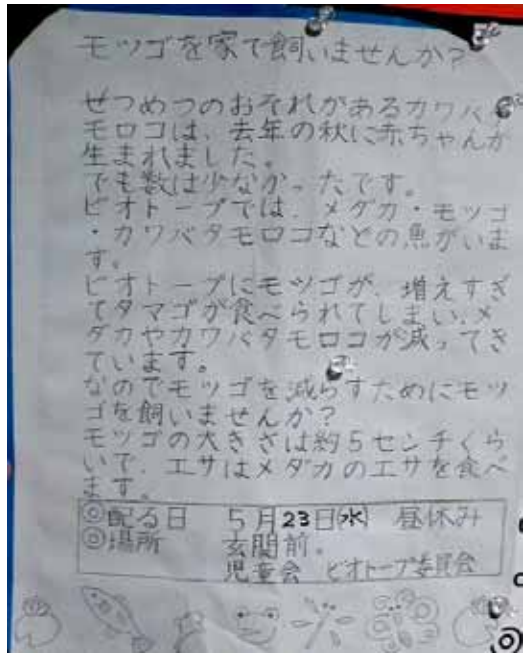 モツゴを家で飼いませんか?
ぜつめつのおそれがあるカワバタ
モロコは、去年の秋に赤ちゃんが
生まれました。
でも数は少なかったです。
ビオトープでは、メダカ・モツゴ
・カワバタモロコなどの魚がいま
す。
ビオトープにモツゴが、増えすぎ
てタマゴが食べられてしまい、メ
ダカやカワバタモロコが減ってき
ています。
なのでモツゴを減らすためにモツ
ゴを飼いませんか?
モツゴの大きさは約5センチくら
いで、エサはメダカのエサを食べ
ます。
◎配る日 5月23日(水) 昼休み
◎場所 玄関前。
児童会 ビオトープ委員会